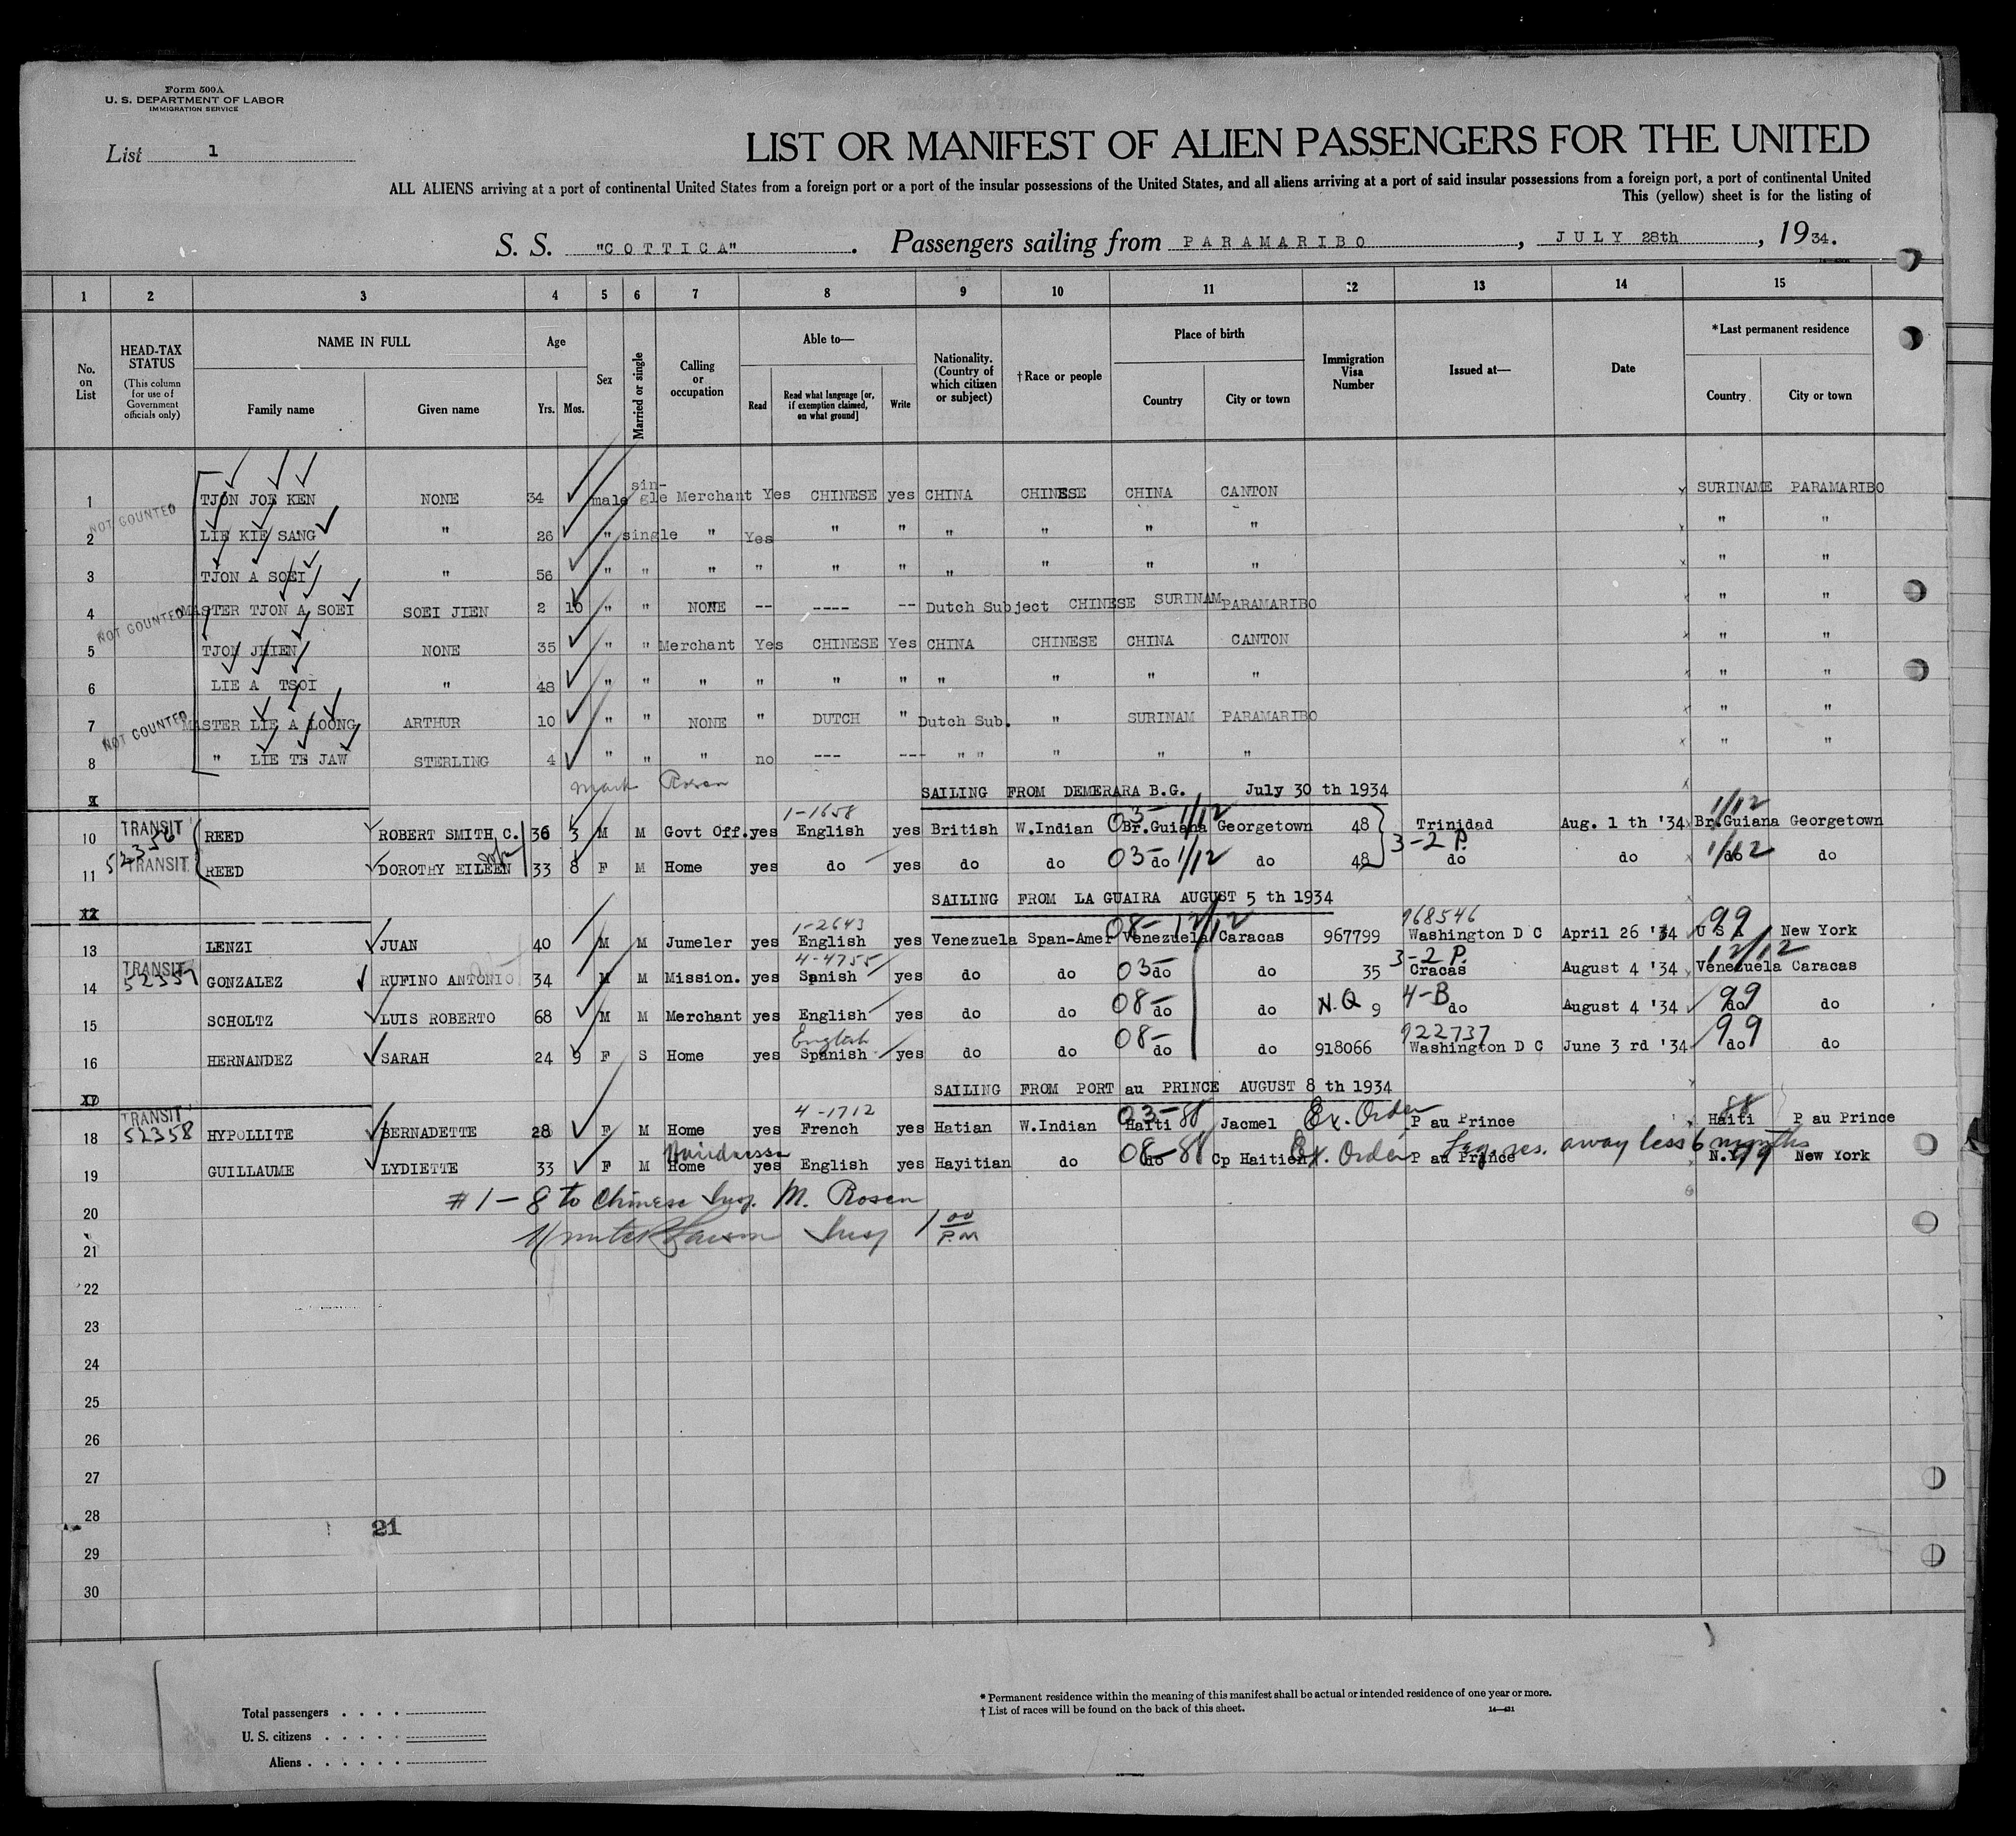 Form 500A
U. S. DEPARTMENT OF LABOR
IMMIGRATION SERVICE
List 1
LIST OR MANIFEST OF ALIEN PASSENGERS FOR THE UNITED
ALL ALIENS arriving at a port of continental United States from a foreign port or a port of the insular possessions of the United States, and all aliens arriving at a port of said insular possessions from a foreign port, a port of continental United
This (yellow) sheet is for the listing of
S. S. "COTTICA". Passengers sailing from PARAMARIBO, JULY 28th, 1934.
1 2 3 4 5 6 7 8 9 10 11 12 13 14 15
No. on List
HEAD-TAX STATUS (This column for use of Government officials only)
NAME IN FULL Family name Given name
Age Yrs. Mos.
Sex
Married or single
Calling or occupation
Able to— Read Read what language [or, if exemption claimed, on what ground] Write
Nationality. (Country of which citizen or subject)
†Race or people
Place of birth Country City or town
Immigration Visa Number
Issued at—
Date
*Last permanent residence Country City or town
1 TJON JOE KEN NONE 34 male sin-gle Merchant Yes CHINESE yes CHINA CHINESE CHINA CANTON SURINAME PARAMARIBO
NOT COUNTED
2 LIE KIE SANG " 26 " single " Yes " " " " " " " "
3 TJON A SOEI " 56 " " " " " " " " " " " "
NOT COUNTED
4 MASTER TJON A SOEI SOEI JIEN 2 10 " " NONE -- ---- -- Dutch Subject CHINESE SURINAM PARAMARIBO " "
5 TJON JHIEN NONE 35 " " Merchant Yes CHINESE Yes CHINA CHINESE CHINA CANTON " "
6 LIE A TSOI " 48 " " " " " " " " " " " "
NOT COUNTED
7 MASTER LIE A LOONG ARTHUR 10 " " NONE " DUTCH " Dutch Sub. " SURINAM PARAMARIBO " "
8 " LIE TE JAW STERLING 4 " " " no --- --- " " " " " " "
Mark Rosen
SAILING FROM DEMERARA B.G. July 30 th 1934
1-1658 03- 1/12 1/12
10 TRANSIT 52356 REED ROBERT SMITH C. 36 3 M M Govt Off. yes English yes British W.Indian Br.Guiana Georgetown 48 Trinidad Aug. 1 th '34 Br.Guiana Georgetown
3-2 P.
11 TRANSIT REED DOROTHY EILEEN 33 8 F M Home yes do yes do do 03- do 1/12 do 48 do do 1/12 do do
12 SAILING FROM LA GUAIRA AUGUST 5 th 1934
1-2643 08- 12/12 968546 99
13 LENZI JUAN 40 M M Jumeler yes English yes Venezuela Span-Amer Venezuela Caracas 967799 Washington D C April 26 '34 U S A New York
4-4755 3-2 P. 12/12
14 TRANSIT 52357 GONZALEZ RUFINO ANTONIO 34 M M Mission. yes Spnish yes do do 03 do do 35 Cracas August 4 '34 Venezuela Caracas
15 SCHOLTZ LUIS ROBERTO 68 M M Merchant yes English yes do do 08- do do N.Q 9 4-B do August 4 '34 99 do do
English 08- 922737 99
16 HERNANDEZ SARAH 24 9 F S Home yes Spanish yes do do do do 918066 Washington D C June 3 rd '34 do do
SAILING FROM PORT au PRINCE AUGUST 8 th 1934
4-1712 03-88 Ex. Order 88
18 TRANSIT 52358 HYPOLLITE BERNADETTE 28 F M Home yes French yes Hatian W.Indian Haiti Jacmel P au Prince Haiti P au Prince
Leg. res. away less 6 months
19 GUILLAUME LYDIETTE 33 F M Home yes English yes Hayitian do 08-88 do Cp Haitien Ex. Order P au Prince N.Y 99 New York
20 # 1-8 to Chinese Insp. M. Rosen
21 Insp 1 00 P.M
22
23
24
25
26
27
28
21
29
30
Total passengers . . . .
U. S. citizens . . . . .
Aliens . . . . . .
* Permanent residence within the meaning of this manifest shall be actual or intended residence of one year or more.
† List of races will be found on the back of this sheet.
14—431